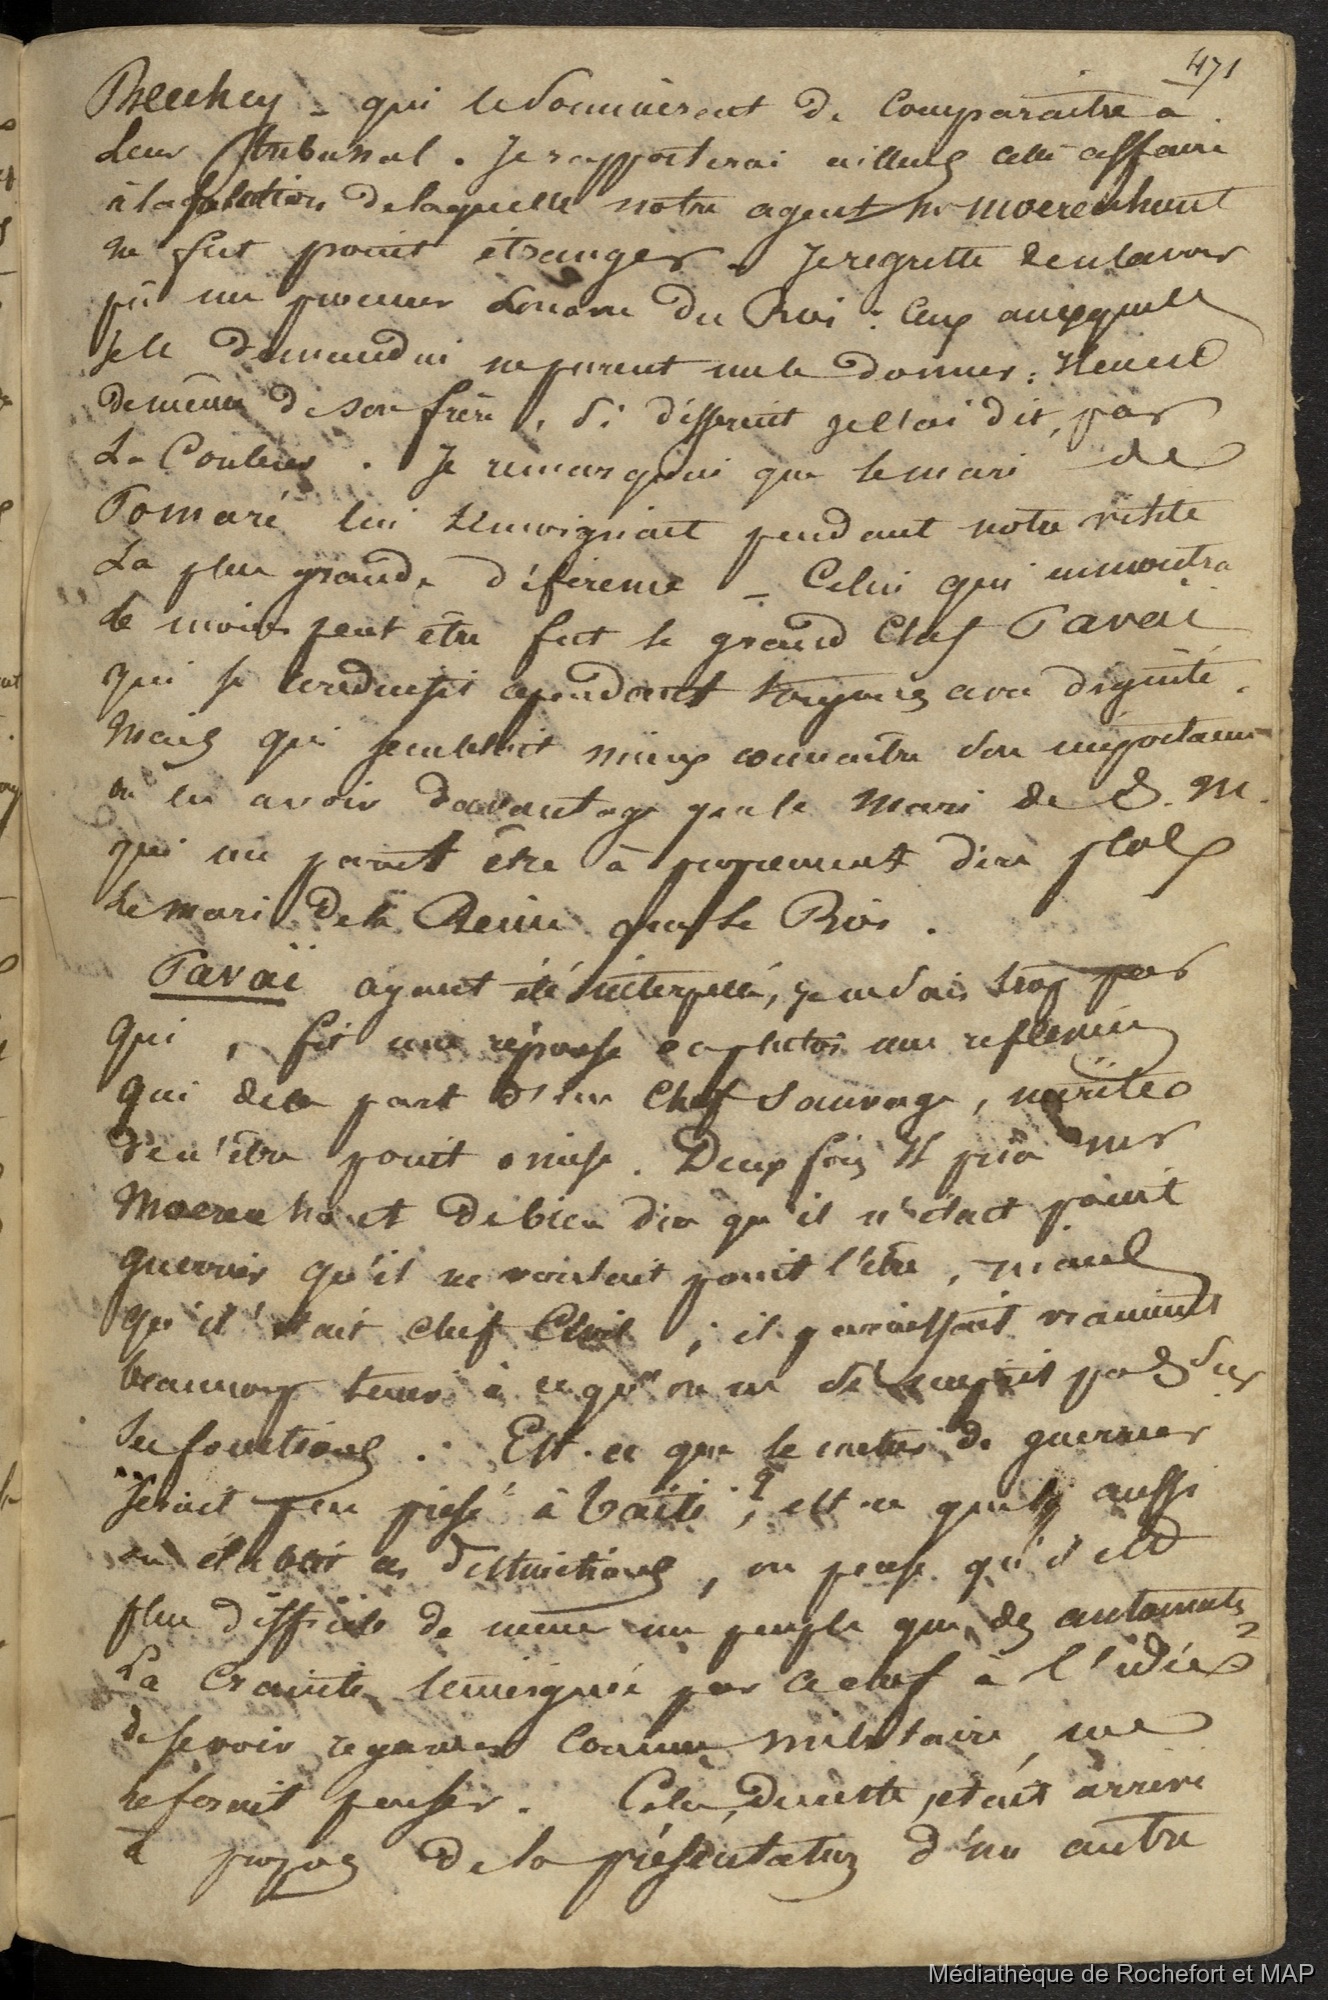 471
Beechey – qui le sommèrent de Comparaître à
Leur tribunal. Je rapporterai ailleurs cette affaire
à la solution de laquelle notre agent Mr Moerenhout
ne fut point étranger. Je regrette de n'avoir
pû me procurer Le nom du Roi : Ceux auxquels
je le demandai ne purent me le donner : Il en est
de même de son frère, si différent je l'ai dit, par
La Couleur. Je remarquai que le mari de
Pomaré lui témoignait pendant notre visite
La plus grande déférence – Celui qui en montra
le moins peut être fut le grand Chef Pavaï
qui se conduisit cependant toujours avec dignité,
Mais qui semblait mieux connaitre son importance
ou en avoir davantage que le Mari de S. M.
qui me parait être à proprement dire plus
Le mari de la Reine que le Roi.
Pavaï ayant été interpellé, je ne sais trop par
qui, fit une réponse ou plutôt une reflexion
qui de la part d'un Chef Sauvage, mérite
de n'être point omise. Deux fois Il pria Mr
Moerenhout de bien dire qu'il n'était point
guerrier qu'il ne voulait point l'être, mais
qu'il était chef Civil ; il paraissait vraiment
beaucoup tenir à ce qu'on ne se méprit pas sur
ses fonctions. Est-ce que le métier de guerrier
serait peu prisé à Taïti ? est-ce que là aussi
on établit ces distinctions, on pense qu'il est
plus difficile de mener un peuple que des automates ?
La Crainte témoignée par ce chef à l'idée
de se voir regarder Comme militaire, me
le ferait penser. Cela, du reste, était arrivé
à propos de la présentation d'un autre
Médiathèque de Rochefort et MAP